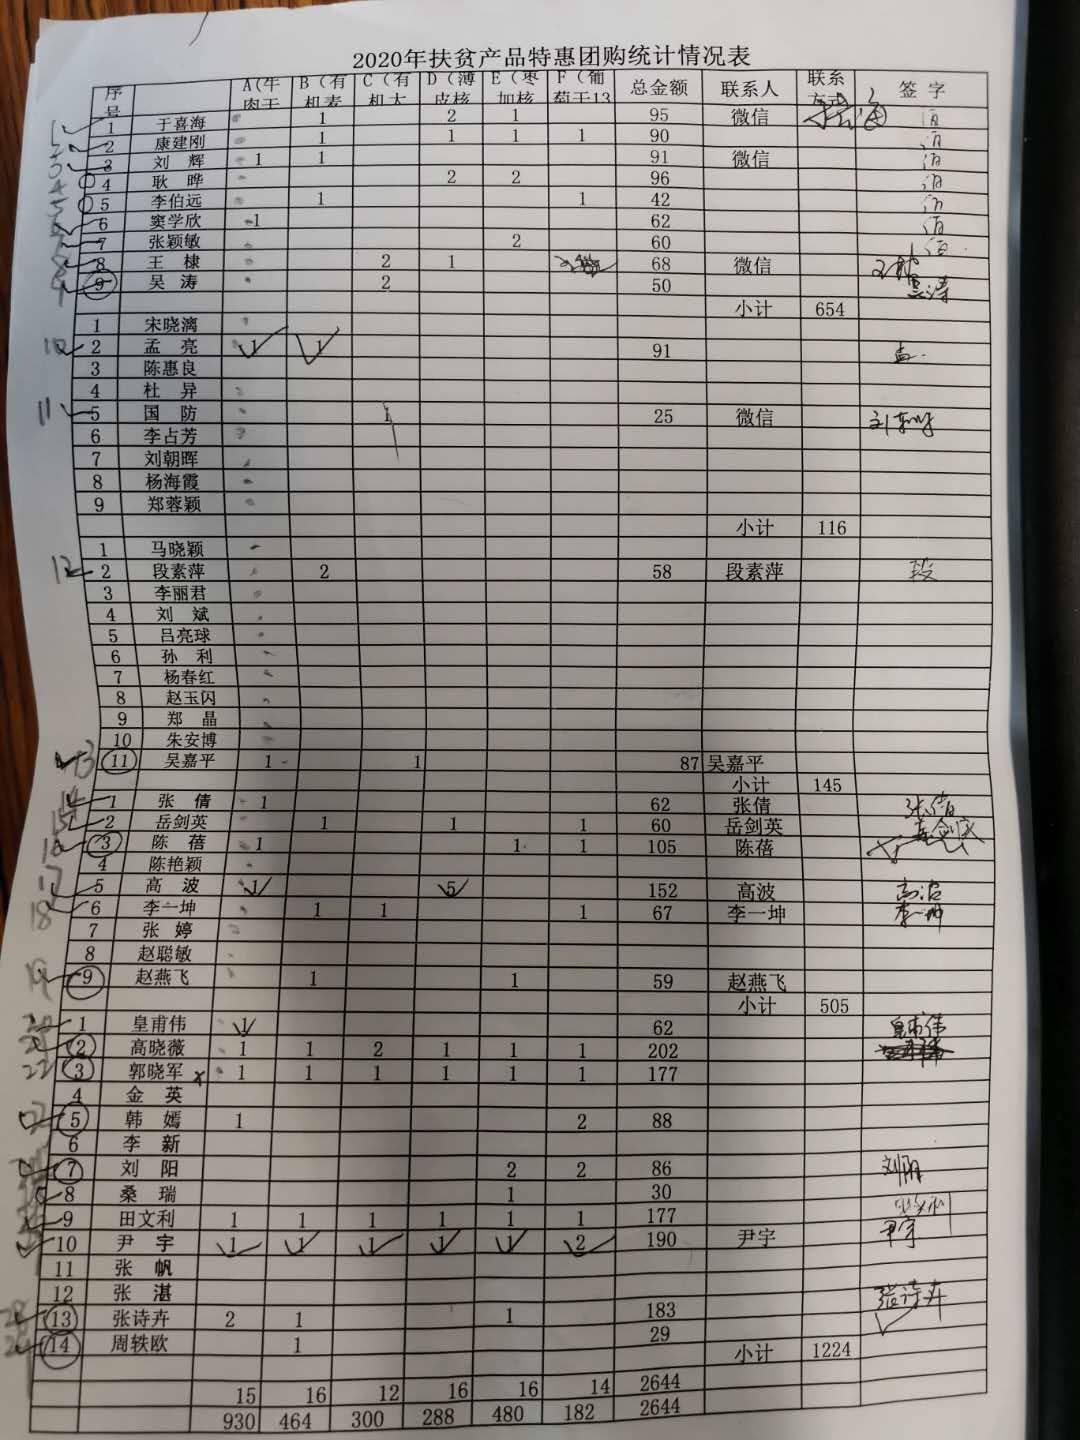 2020年扶贫产品特惠团购统计情况表
序号 A(牛肉干 B（有机麦 C（有机大 D（薄皮核 E（枣加核 F（葡萄干13 总金额 联系人 联系方式 签 字
1 于喜海 1 2 1 95 微信
2 康建刚 1 1 1 1 90
3 刘 辉 1 1 91 微信
4 耿 晔 2 2 96
5 李伯远 1 1 42
6 窦学欣 1 62
7 张颖敏 2 60
8 王 棣 2 1 2 68 微信
9 吴 涛 2 50 吴涛
小计 654
1 宋晓漓
10 2 孟 亮 1 1 91 孟
3 陈惠良
4 杜 异
11 5 国 防 1 25 微信
6 李占芳
7 刘朝晖
8 杨海霞
9 郑蓉颖
小计 116
1 马晓颖
12 2 段素萍 2 58 段素萍 段
3 李丽君
4 刘 斌
5 吕亮球
6 孙 利
7 杨春红
8 赵玉闪
9 郑 晶
10 朱安博
13 11 吴嘉平 1 1 87 吴嘉平
小计 145
14 1 张 倩 1 62 张倩 张倩
15 2 岳剑英 1 1 1 60 岳剑英 岳剑英
16 3 陈 蓓 1 1 1 105 陈蓓
4 陈艳颖
17 5 高 波 1 5 152 高波 高波
18 6 李一坤 1 1 1 67 李一坤 李一坤
7 张 婷
8 赵聪敏
19 9 赵燕飞 1 1 59 赵燕飞
小计 505
1 皇甫伟 62 皇甫伟
2 高晓薇 1 1 2 1 1 1 202
22 3 郭晓军 1 1 1 1 1 1 177
4 金 英
5 韩 嫣 1 2 88
6 李 新
7 刘 阳 2 2 86 刘阳
8 桑 瑞 1 30
9 田文利 1 1 1 1 1 1 177 田文利
10 尹 宇 1 1 1 1 1 2 190 尹宇 尹宇
11 张 帆
12 张 湛
28 13 张诗卉 2 1 1 183 张诗卉
14 周轶欧 1 29
小计 1224
15 16 12 16 16 14 2644
930 464 300 288 480 182 2644